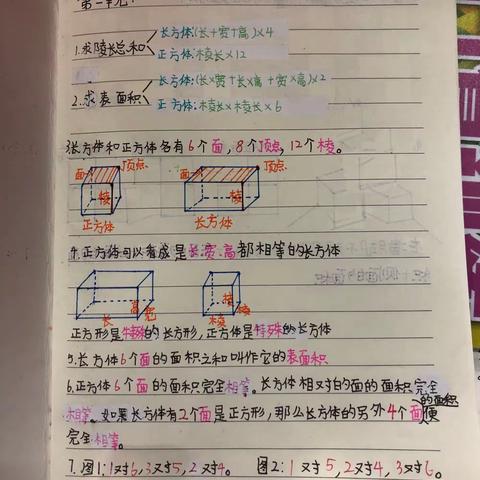 第一单元
长方体:(长+宽+高)×4
1.求棱长总和
正方体:棱长×12
长方体:(长×宽+长×高+宽×高)×2
2.求表面积
正方体:棱长×棱长×6
3.长方体和正方体各有6个面,8个顶点,12个棱。
面 顶点 面 顶点
棱 棱
正方体 长方体
4.正方体可以看成是长、宽、高都相等的长方体
高 宽 棱长
长 棱长
正方形是特殊的长方形,正方体是特殊的长方体
5.长方体6个面的面积之和叫作它的表面积
6.正方体6个面的面积完全相等。长方体相对的面的面积完全
相等。如果长方体有2个面是正方形,那么长方体的另外4个面的面积
完全相等。
7.图1:1对6,3对5,2对4。 图2:1对5,2对4,3对6。